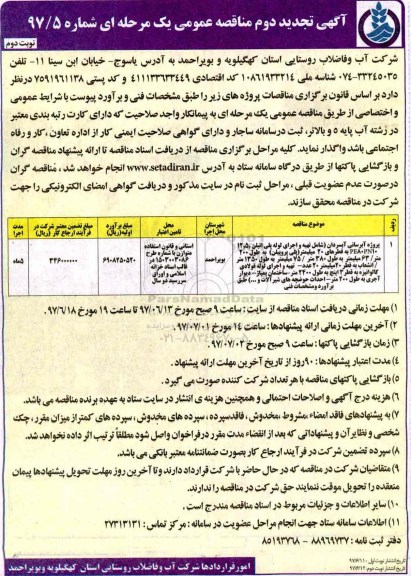 آگهی تجدید دوم مناقصه عمومی یک مرحله ای شماره ۹۷/۵
نوبت دوم
شرکت آب وفاضلاب روستایی استان کهگیلویه و بویراحمد به آدرس یاسوج- خیابان ابن سینا ۱۱- تلفن
۰۷۴-۳۳۲۴۵۰۳۵ شناسه ملی ۱۰۸۶۱۹۳۳۲۱۴ کد اقتصادی ۴۱۱۱۳۳۶۳۳۴۴۹ و کد پستی ۷۵۹۱۹۶۱۱۳۸ درنظر
دارد بر اساس قانون برگزاری مناقصات پروژه های زیر را طبق مشخصات فنی و برآورد پیوست با شرایط عمومی
و اختصاصی از طریق مناقصه عمومی یک مرحله ای به پیمانکار واجد صلاحیت که دارای کارت رتبه بندی معتبر
در رشته آب پایه ۵ و بالاتر، ثبت درسامانه ساجار و دارای گواهی صلاحیت ایمنی کار از اداره تعاون ، کار و رفاه
اجتماعی باشد واگذار نماید. کلیه مراحل برگزاری مناقصه از دریافت اسناد مناقصه تا ارائه پیشنهاد مناقصه گران
و بازگشایی پاکتها از طریق درگاه سامانه ستاد به آدرس www.setadiran.ir انجام خواهد شد ، مناقصه گران
درصورت عدم عضویت قبلی ، مراحل ثبت نام در سایت مذکور و دریافت گواهی امضای الکترونیکی را جهت
شرکت در مناقصه محقق سازند.
ردیف
موضوع مناقصه
شهرستان محل اجرا
محل تامین اعتبار
مبلغ برآورد اولیه (ریال)
مبلغ تضمین معتبر شرکت در فرآیند ارجاع کار (ریال)
مدت اجرا
۱
پروژه آبرسانی آبسردان
بویراحمد
استانی و قانون استفاده متوازن با شماره طرح
در قالب اسناد خزانه اسلامی و اوراق
سررسید دو سال
۳۴۶۰۰۰۰۰۰
۵ماه
۱) مهلت زمانی دریافت اسناد مناقصه از سایت : ساعت ۹ صبح مورخ ۹۷/۰۶/۱۳ تا ساعت ۱۹ مورخ ۹۷/۶/۱۸
۲) آخرین مهلت زمانی ارائه پیشنهادها : ساعت ۱۴ مورخ ۹۷/۰۷/۰۱
۳) زمان بازگشایی پاکتها : ساعت ۹ صبح مورخ ۹۷/۰۷/۰۲
۴) مدت اعتبار پیشنهادها : ۹۰روز از تاریخ آخرین مهلت ارائه پیشنهاد .
۵) بازگشایی پاکتهای مناقصه با هر تعداد شرکت کننده صورت می گیرد .
۶) هزینه درج آگهی و اصلاحات احتمالی و همچنین هزینه ی انتشار در سایت ستاد به عهده برنده مناقصه می باشد.
۷) به پیشنهادهای فاقد امضاء ،مشروط ،مخدوش ، فاقدسپرده ، سپرده های مخدوش ، سپرده های کمتر از میزان مقرر ، چک
شخصی و نظایر آن و پیشنهاداتی که بعد از انقضاء مدت مقرر درفراخوان واصل شود مطلقاً ترتیب اثر داده نخواهد شد.
۸) سپرده تضمین شرکت در فرآیند ارجاع کار بصورت ضمانتنامه معتبر بانکی می باشد.
۹) متقاضیان شرکت در مناقصه که در حال حاضر با شرکت قرارداد دارند و تا آخرین روز مهلت تحویل پیشنهادها پیمان
منعقده را تحویل موقت ننمایند حق شرکت در مناقصه را ندارند.
۱۰) سایر اطلاعات و جزئیات مربوط در اسناد مناقصه مندرج است .
۱۱) اطلاعات سامانه ستاد جهت انجام مراحل عضویت در سامانه : مرکز تماس : ۲۷۳۱۳۱۳۱
دفتر ثبت نامه : ۸۸۹۶۹۷۳۷ - ۸۵۱۹۳۷۶۸
امور قراردادها شرکت آب وفاضلاب روستایی استان کهگیلویه وبویراحمد